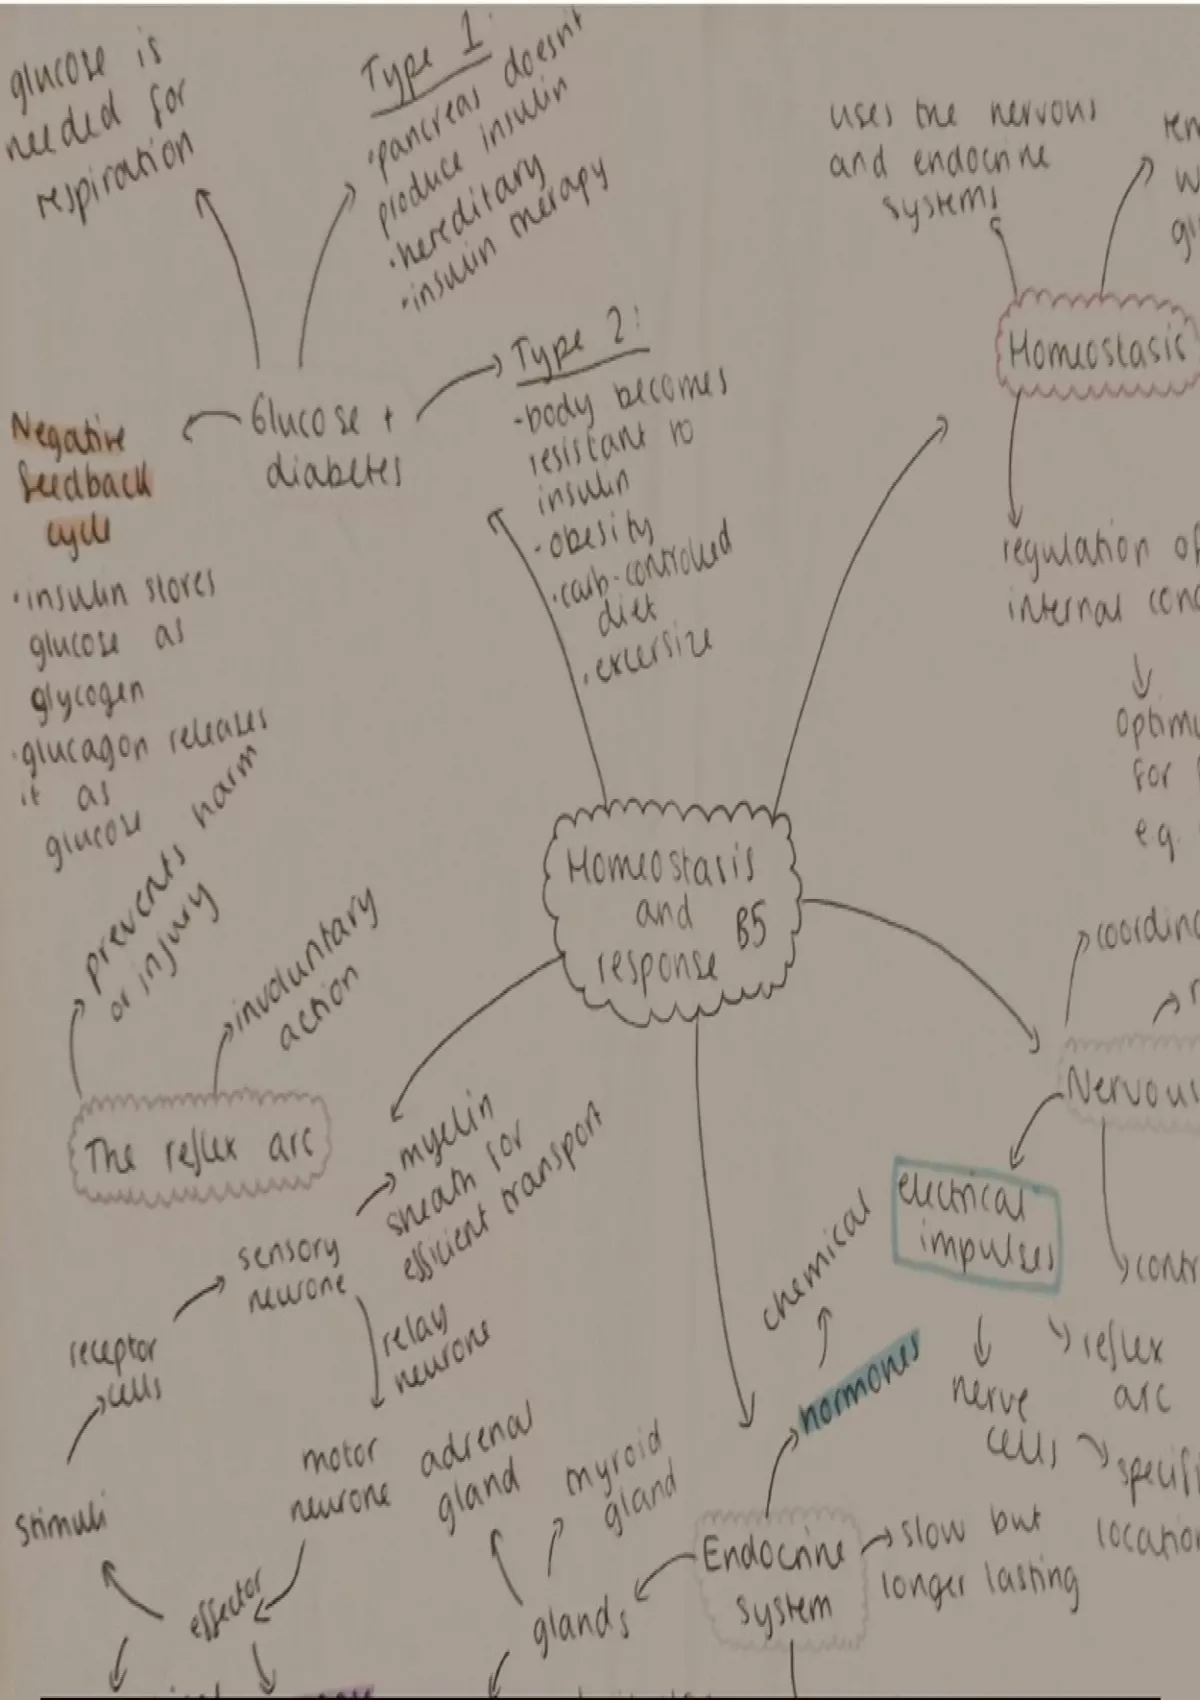 glucose is
needed for
respiration
Type 1:
·pancreas doesn't
produce insulin
·hereditary
·insulin therapy
uses the nervous
and endocrine
systems
Homeostasis
Type 2:
·body becomes
resistant to
insulin
·obesity
·carb-controlled
diet
·excersize
Glucose +
diabetes
Negative
feedback
cycle
·insulin stores
glucose as
glycogen
·glucagon releases
it as
glucose
regulation of
internal
for
e.g.
Homeostasis
and B5
response
prevents harm
or injury
involuntary
action
The reflex arc
myelin
sheath for
efficient transport
sensory
neurone
relay
neurone
receptor
cells
stimuli
motor
neurone
effector
Nervous
electrical
impulses
reflex
arc
nerve
cells
chemical
hormones
adrenal
gland
thyroid
gland
glands
Endocrine
system
slow but
longer lasting